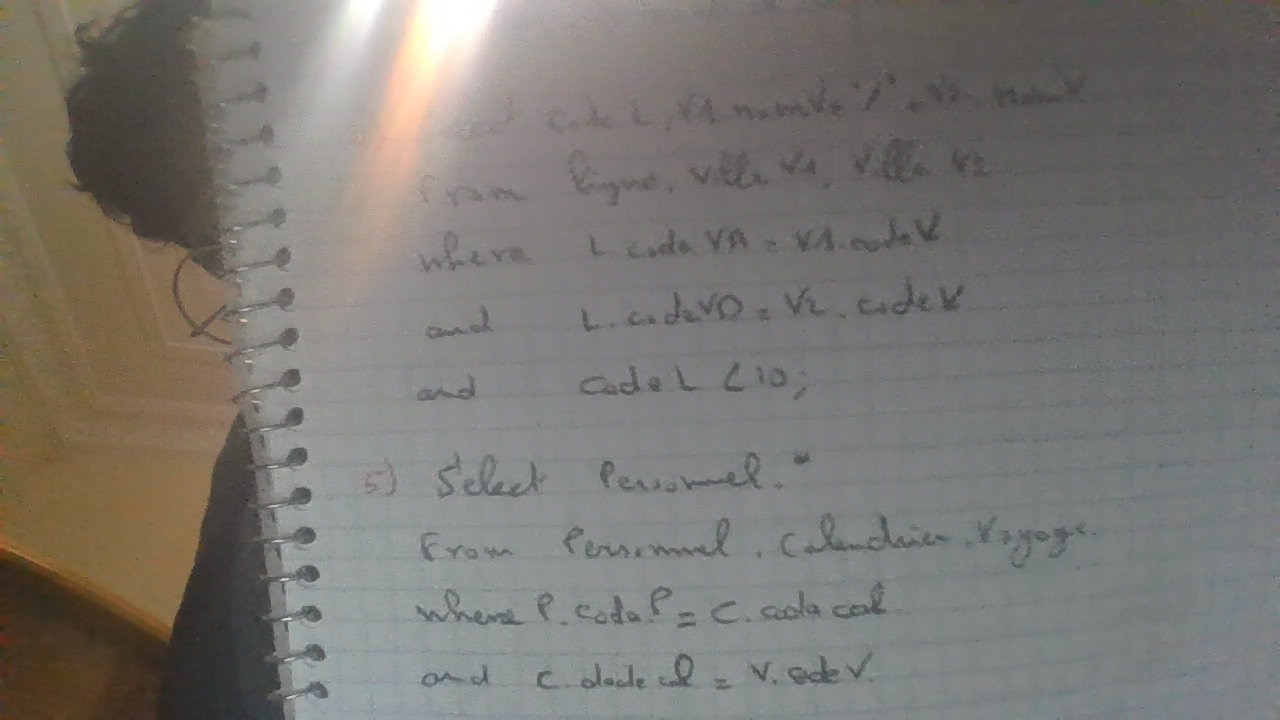 code L, V1.nomV, '/', V2.nomV
From ligne, ville V1, ville V2
where L.codeVA = V1.codeV
and L.codeVD = V2.codeV
and codeL < 10;
5) Select Personnel.*
From Personnel, Calendrier, Voyage.
where P.codeP = C.codecal
and C.codecal = V.codeV.